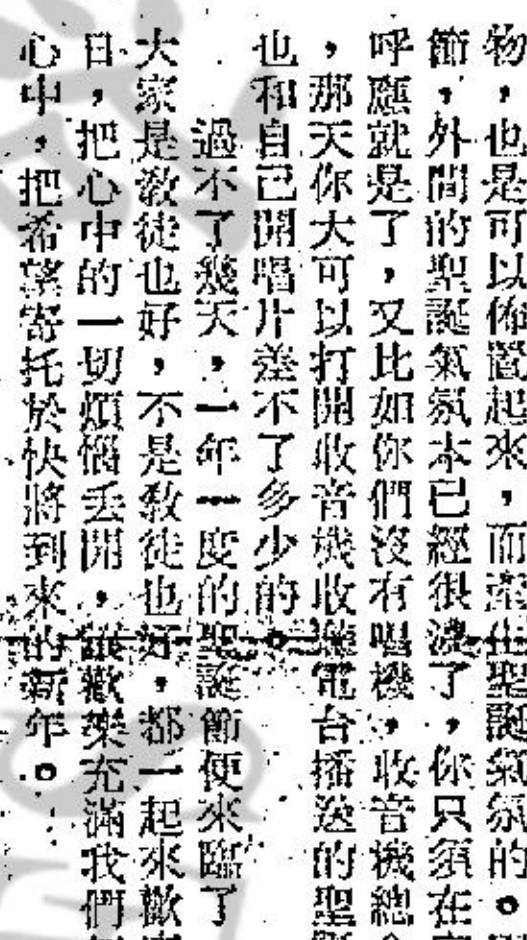 物，也是可以佈置起來，而產生聖誕氣氛的。
節，外間的聖誕氣氛本已經很濃了，你只須在
呼應就是了，又比如你們沒有唱機，收音機總
，那天你大可以打開收音機收聽電台播送的聖
也和自己開唱片差不了多少的。
過不了幾天，一年一度的聖誕節便來臨了
大家是教徒也好，不是教徒也好，都一起來歡
日，把心中的一切煩惱丟開，讓歡樂充滿我們
心中，把希望寄托於快將到來的新年。